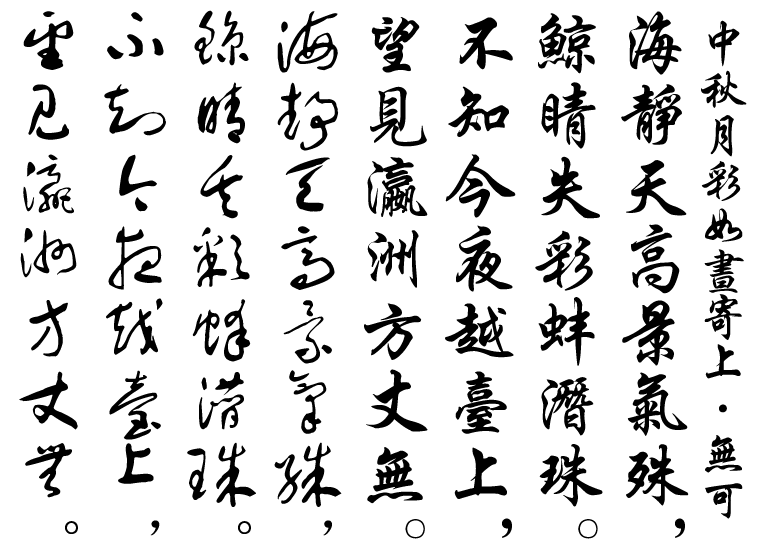 中秋月彩如晝寄上・無可
海靜天高景氣殊，
鯨睛失彩蚌潛珠。
不知今夜越臺上，
望見瀛洲方丈無。
海靜天高景氣殊，
鯨睛失彩蚌潛珠。
不知今夜越臺上，
望見瀛洲方丈無。